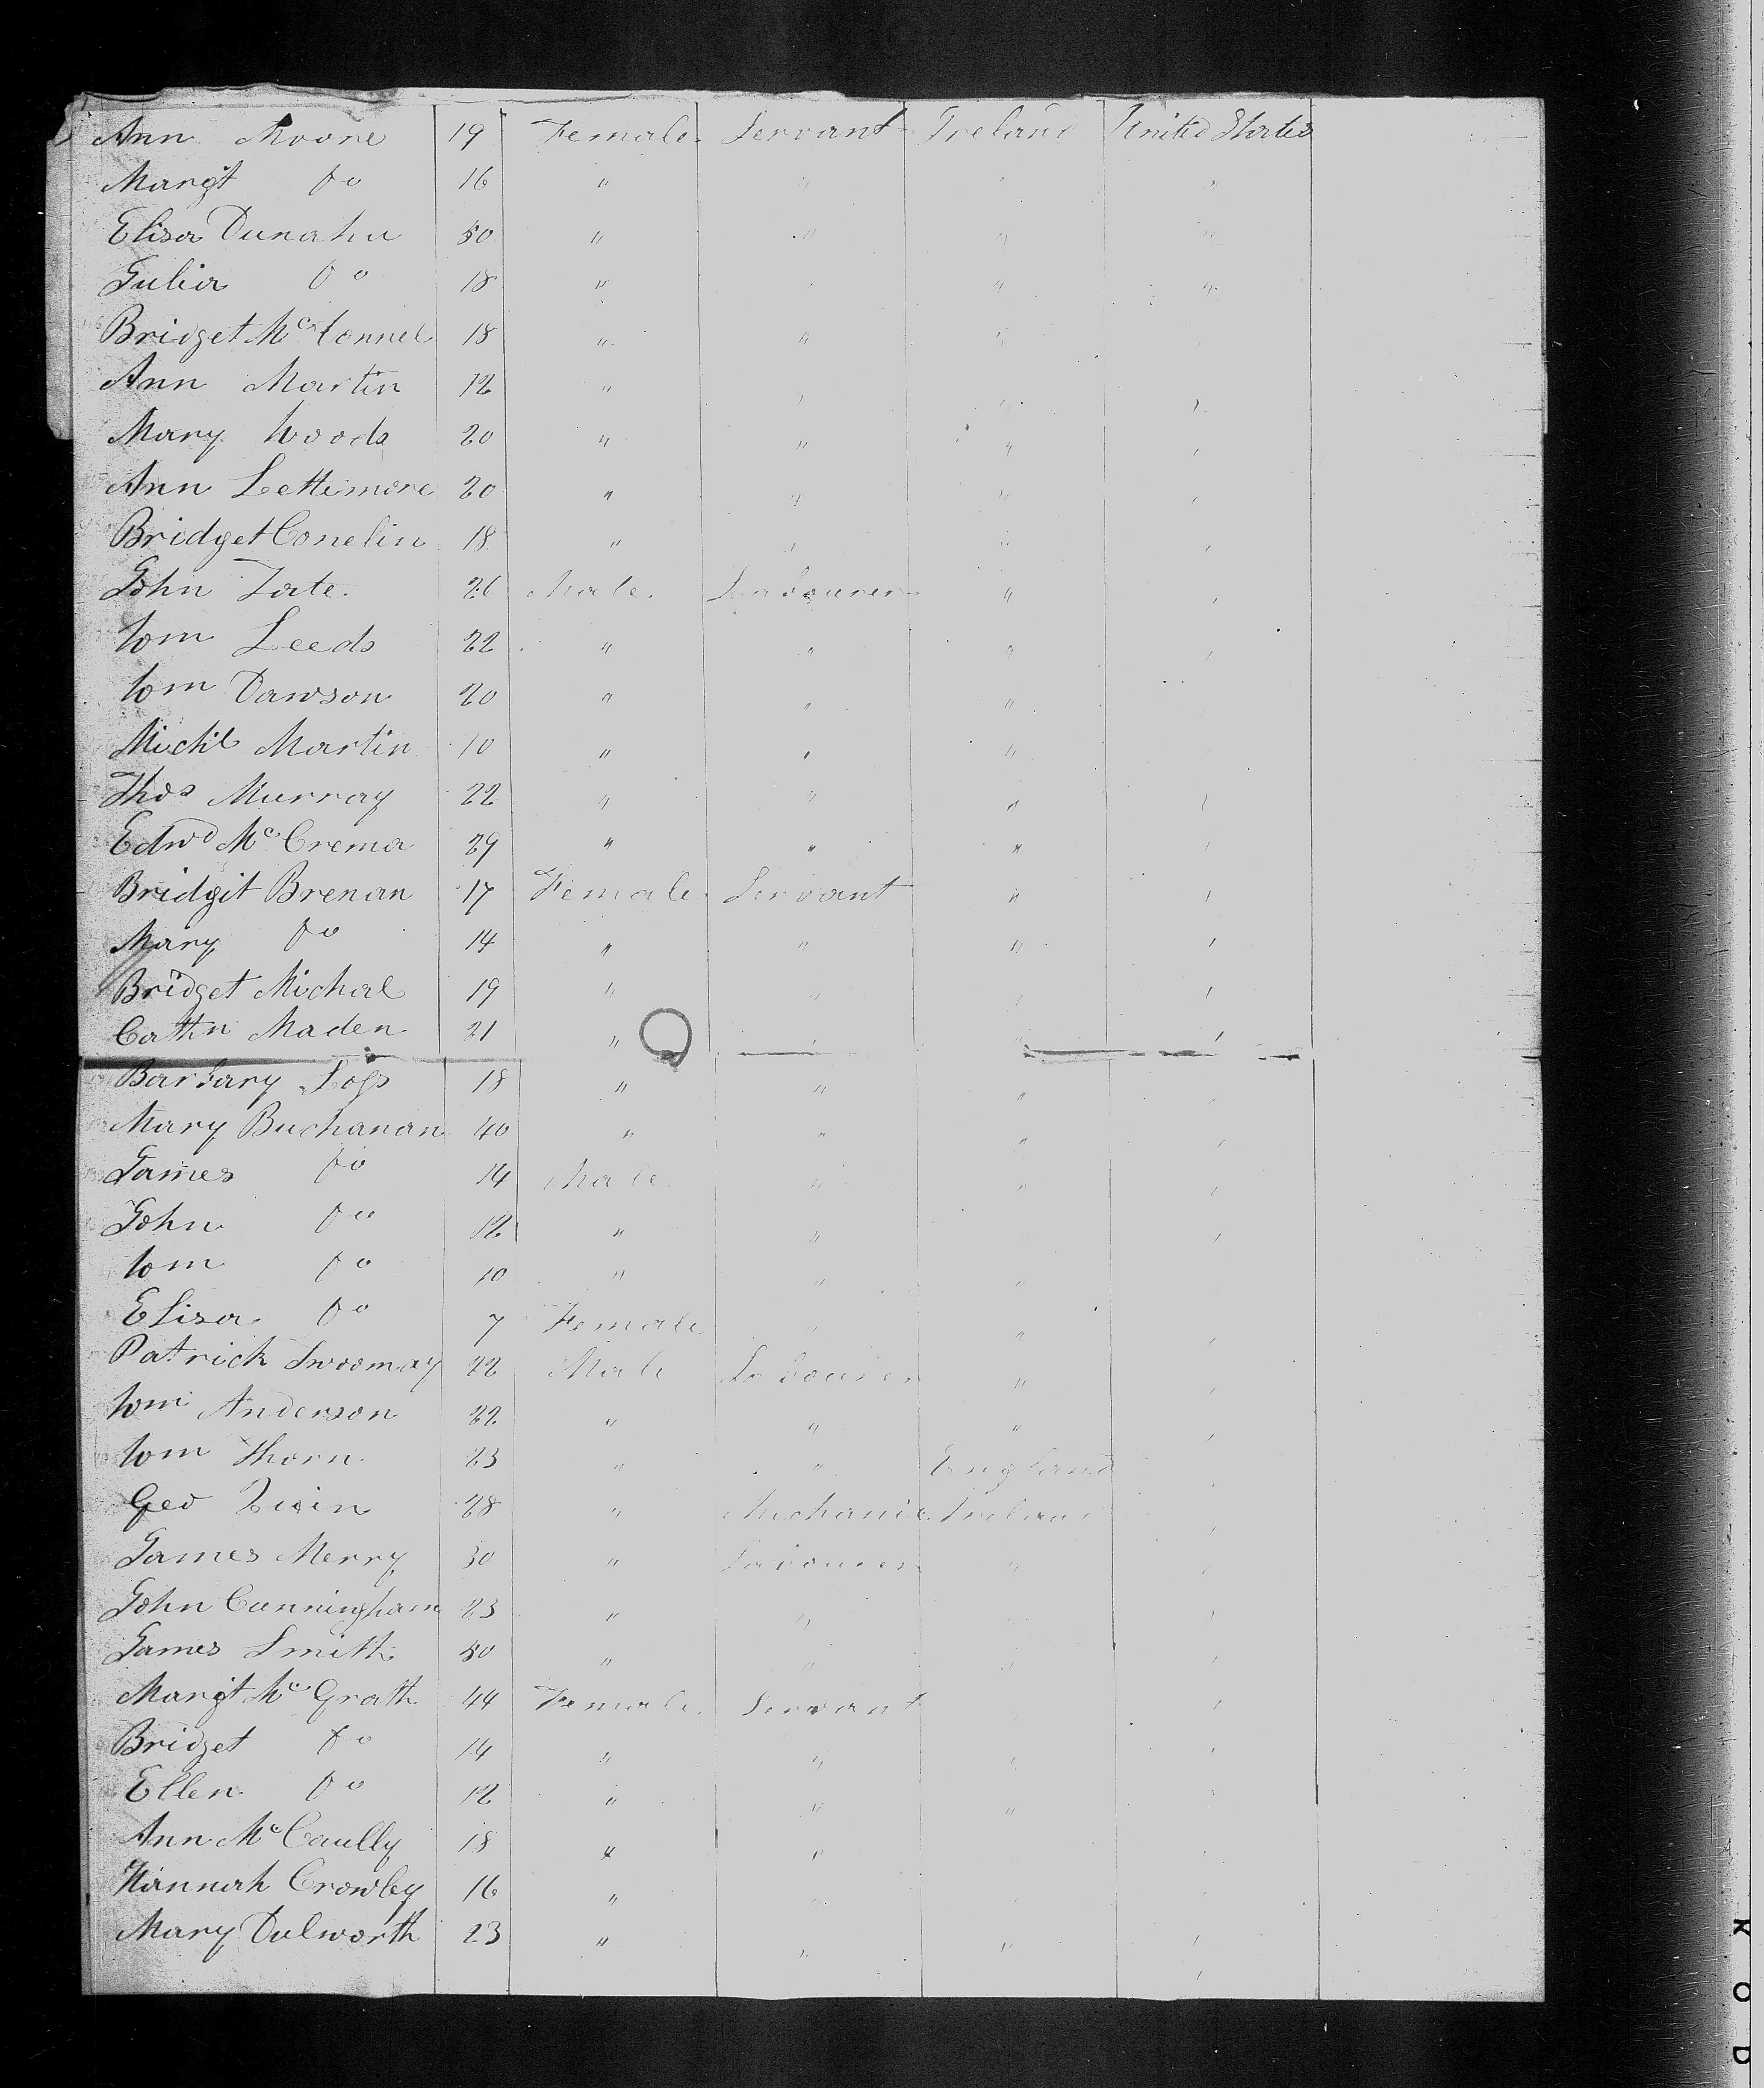 Ann Moore 19 Female Servant Ireland United States
Margt Do 16 " " " "
Elisa Dunahu 50 " " " "
Julia Do 18 " " " "
Bridget McConnel 18 " " " "
Ann Martin 12 " " " "
Mary Woods 20 " " " "
Ann Lettimore 20 " " " "
Bridget Conelin 18 " " " "
John Tate 26 Male Labourer " "
Wm Leeds 22 " " " "
Wm Dawson 20 " " " "
Michl Martin 10 " " "
Thos Murray 22 " " " "
Edwd McCrema 29 " " " "
Bridgit Brenan 17 Female Servant " "
Mary Do 14 " " " "
Bridget Michal 19 " " " "
Cathn Maden 21 " " " "
Barbary 18 " " " "
Mary Buchanan 40 " " " "
James Do 14 Male " " "
John Do 12 " " " "
Wm Do 10 " " "
Elisa Do 7 Female " " "
Patrick 22 Male Labourer " "
Wm Anderson 22 " " " "
Wm Thorn 23 " " England "
Geo 28 " Mechanic Ireland "
James Merry 30 " Labourer " "
John Cunningham 23 " " " "
James Smith 50 " " " "
Margt McGrath 44 Female Servant "
Bridget Do 14 " " " "
Ellen Do 12 " " " "
Ann McCaully 18 " " "
Hannah Crowley 16 " "
Mary Dulworth 23 " " " "
K O D